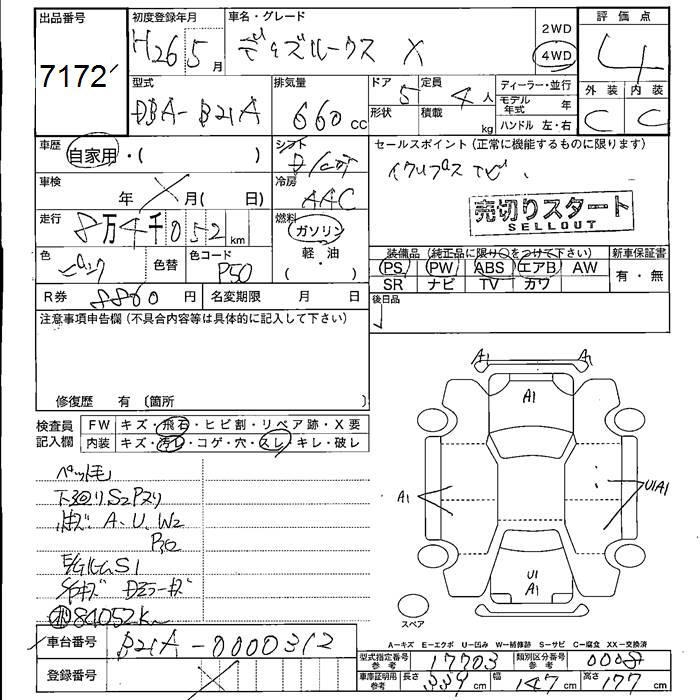 出品番号
7172
初度登録年月
H26 5月
車名・グレード
デイズルークス X
2WD
4WD
評価点
4
型式
DBA-B21A
排気量
660 cc
ドア 5
形状
定員 4人
積載 kg
ディーラー・並行
モデル年式 年
ハンドル 左・右
外装 内装
C C
車歴
自家用・( )
シフト
冷房
AAC
セールスポイント(正常に機能するものに限ります)
売切りスタート
SELLOUT
車検
年 月( 日)
走行
8万4千052km
燃料
ガソリン
軽・油
( )
色
色替
色コード
P50
装備品(純正品に限り○をつけて下さい)
新車保証書
PS PW ABS エアB AW
SR ナビ TV カワ
有・無
R券 8860円
名変期限 月 日
後日品
注意事項申告欄(不具合内容等は具体的に記入して下さい)
修復歴 有(箇所 )
検査員記入欄
FW キズ・飛石・ヒビ割・リペア跡・X要
内装 キズ・汚レ・コゲ・穴・スレ・キレ・破レ
ペットモ
下廻りS2Pスリ
A、U、W2
P50
S1
Dミラーキズ
84052K
A1 A1
A1
A1
U1A1
U1
A1
スペア
A-キズ E-エクボ U-凹み W-補修跡 S-サビ C-腐食 XX-交換済
車台番号 B21A-0000312
登録番号
型式指定番号 参考 17703
類別区分番号 参考 0008
車庫証明用 参考 長さ 339cm 幅 147cm 高さ 177cm